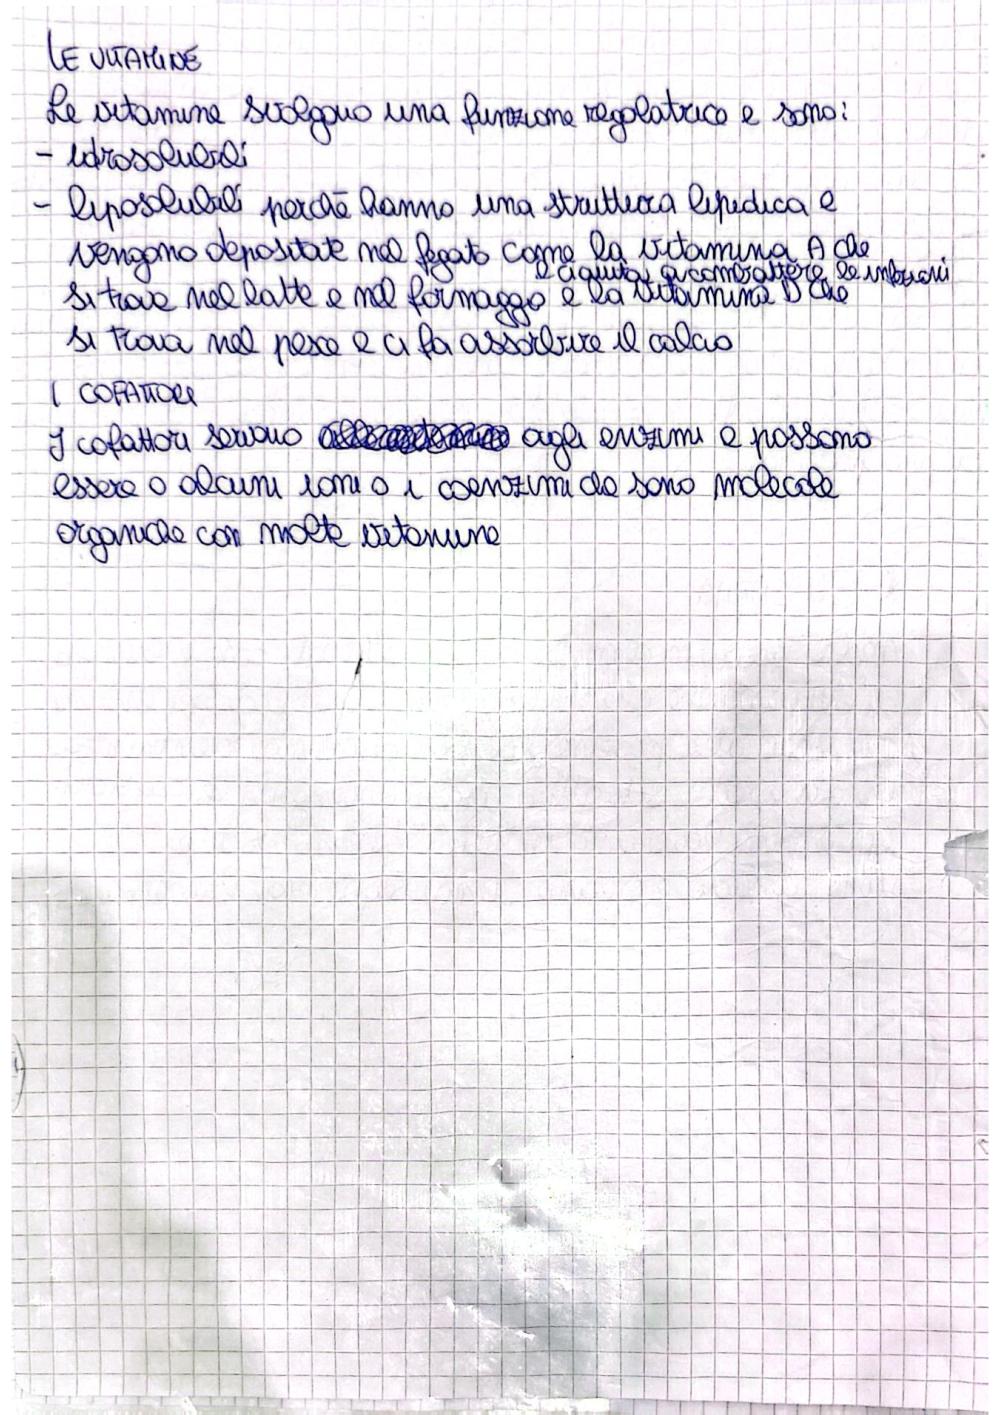 LE VITAMINE
Le vitamine svolgono una funzione regolatrice e sono:
- idrosolubili
- liposolubili perchè hanno una struttura lipidica e
vengono depositate nel fegato come la vitamina A che
e ci aiuta a combattere le infezioni
si trova nel latte e nel formaggo e la vitamina D che
si trova nel pesce e ci fa assorbire il calcio
I COFATTORI
I cofattori servono agli enzimi e possono
essere o alcuni ioni o i coenzimi che sono molecole
organiche con molte vitamine